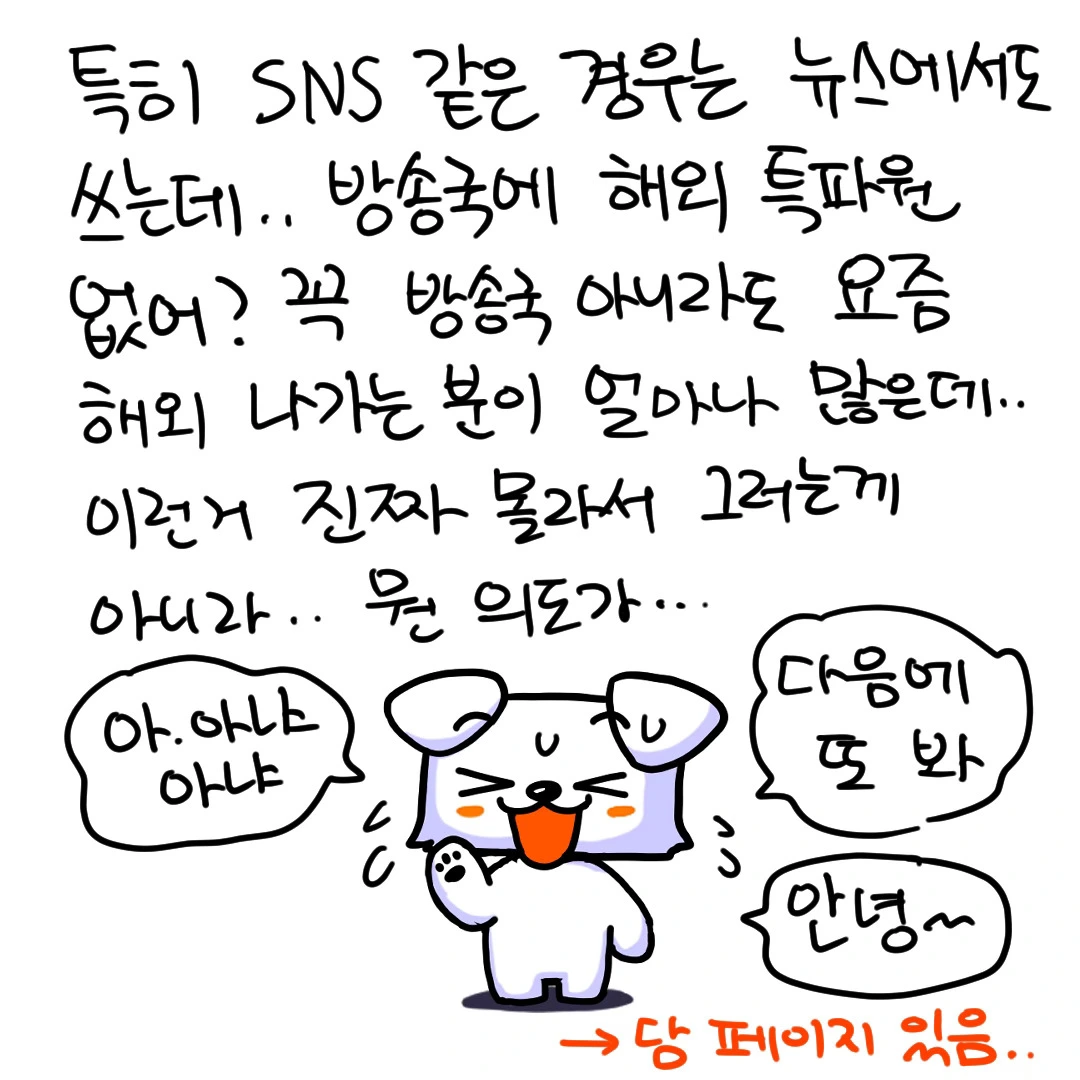 특히 SNS 같은 경우는 뉴스에서도
쓰는데.. 방송국에 해외 특파원
없어? 꼭 방송국 아니라도 요즘
해외 나가는 분이 얼마나 많은데..
이런거 진짜 몰라서 그러는게
아니라.. 뭔 의도가...
아.아냐
아냐
다음에
또 봐
안녕~
→ 담 페이지 있음..